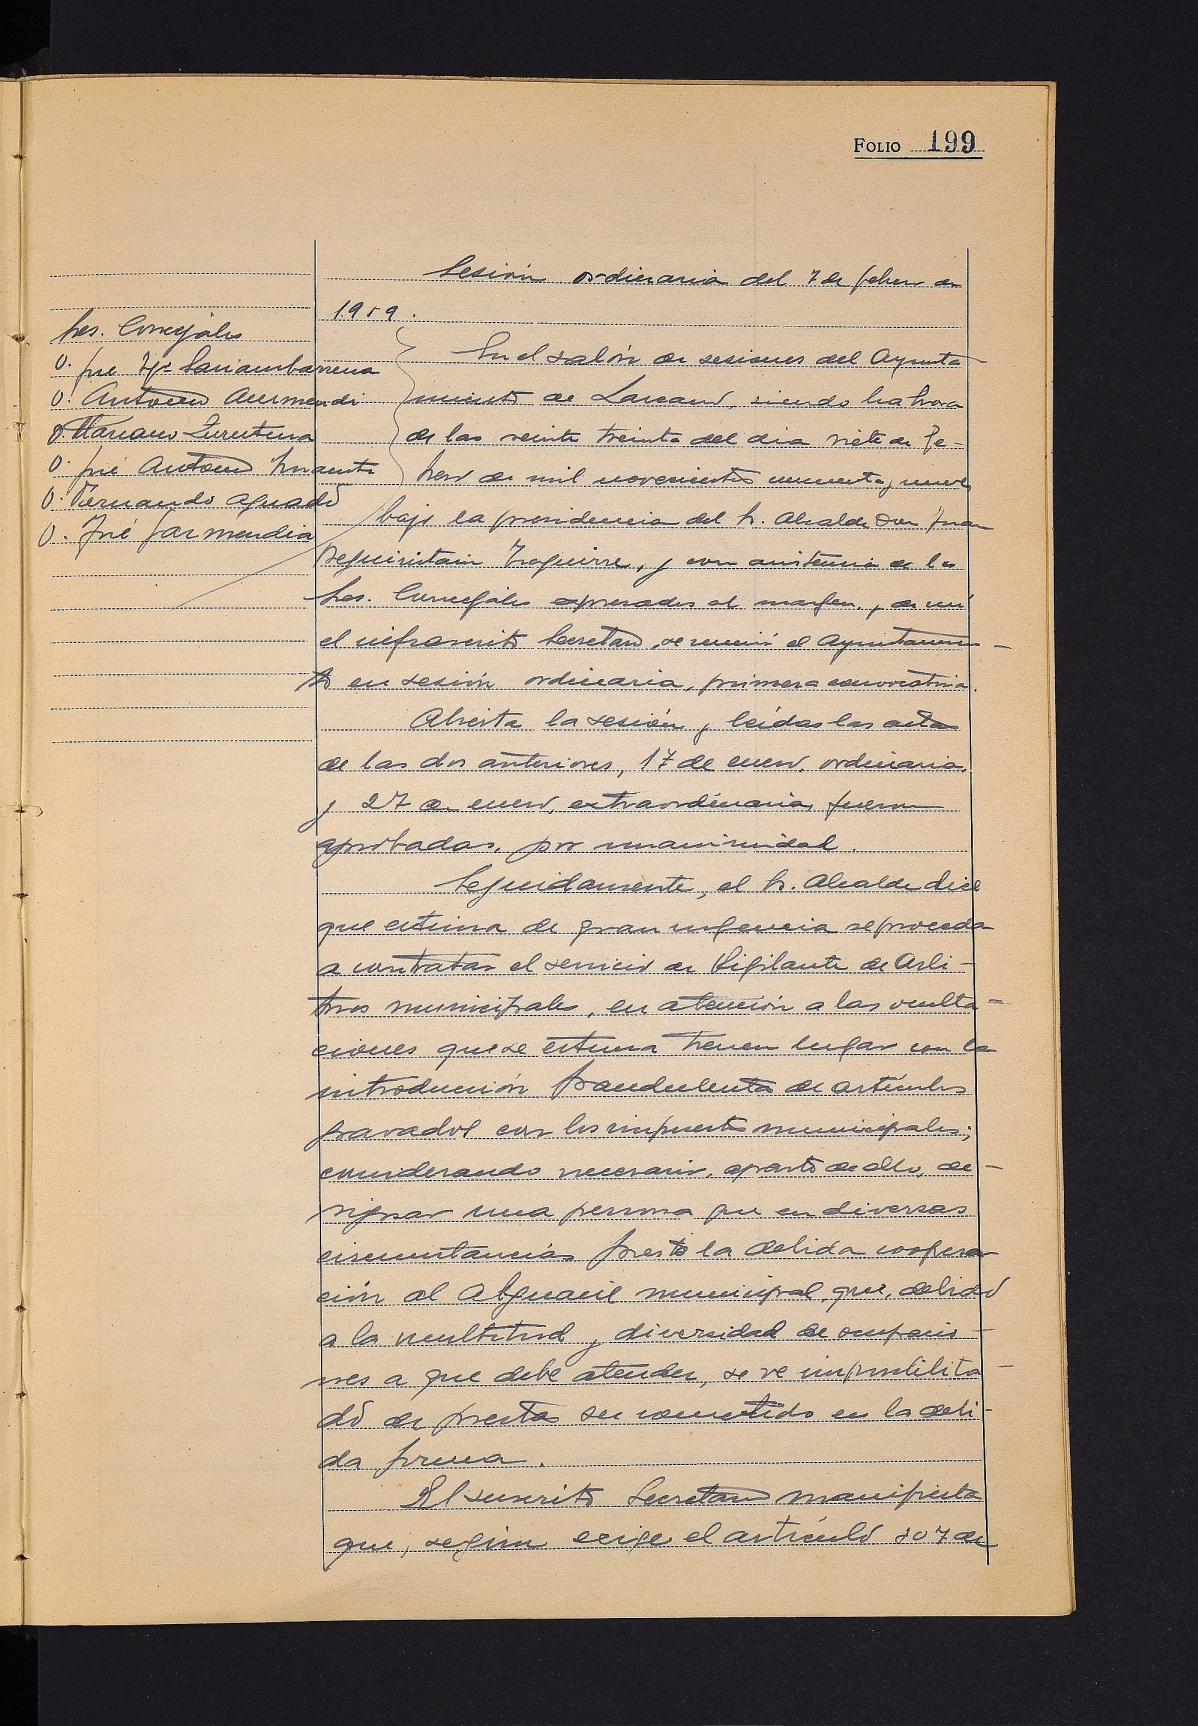 FOLIO 199
Sesión ordinaria del 7 de febrero de
1959.
Sres. Concejales
D. José Mª Lariambarrena
D. Antonio Aurmendi
D. Mariano Zurutuza
D. José Antonio
D. Fernando Aguado
D. José Garmendia
En el salón de sesiones del Ayunta-
miento de Lazcano, siendo la hora
de las veinte treinta del día siete de Fe-
brero de mil novecientos cincuenta y nueve
bajo la presidencia del Sr. Alcalde don Juan
Seguiristain Izaguirre, y con asistencia de los
Sres. Concejales expresados al margen, y de mí
el infrascrito Secretario, se reunió el Ayuntamien-
to en sesión ordinaria, primera convocatoria.
Abierta la sesión y leídas las actas
de las dos anteriores, 17 de enero, ordinaria,
y 27 de enero, extraordinaria, fueron
aprobadas, por unanimidad.
Seguidamente, el Sr. Alcalde dice
que estima de gran urgencia se proceda
a contratar el servicio de Vigilante de Arbi-
trios municipales, en atención a las oculta-
ciones que se estima tienen lugar con la
introducción fraudulenta de artículos
gravados con los impuestos municipales;
considerando necesario, aparte de ello, de-
signar una persona que en diversas
circunstancias preste la debida coopera-
ción al Alguacil municipal, que, debido
a la multitud y diversidad de ocupacio-
nes a que debe atender, se ve imposibilita-
do de prestar su cometido en la debi-
da forma.
El suscrito Secretario manifiesta
que, según exige el artículo 307 de